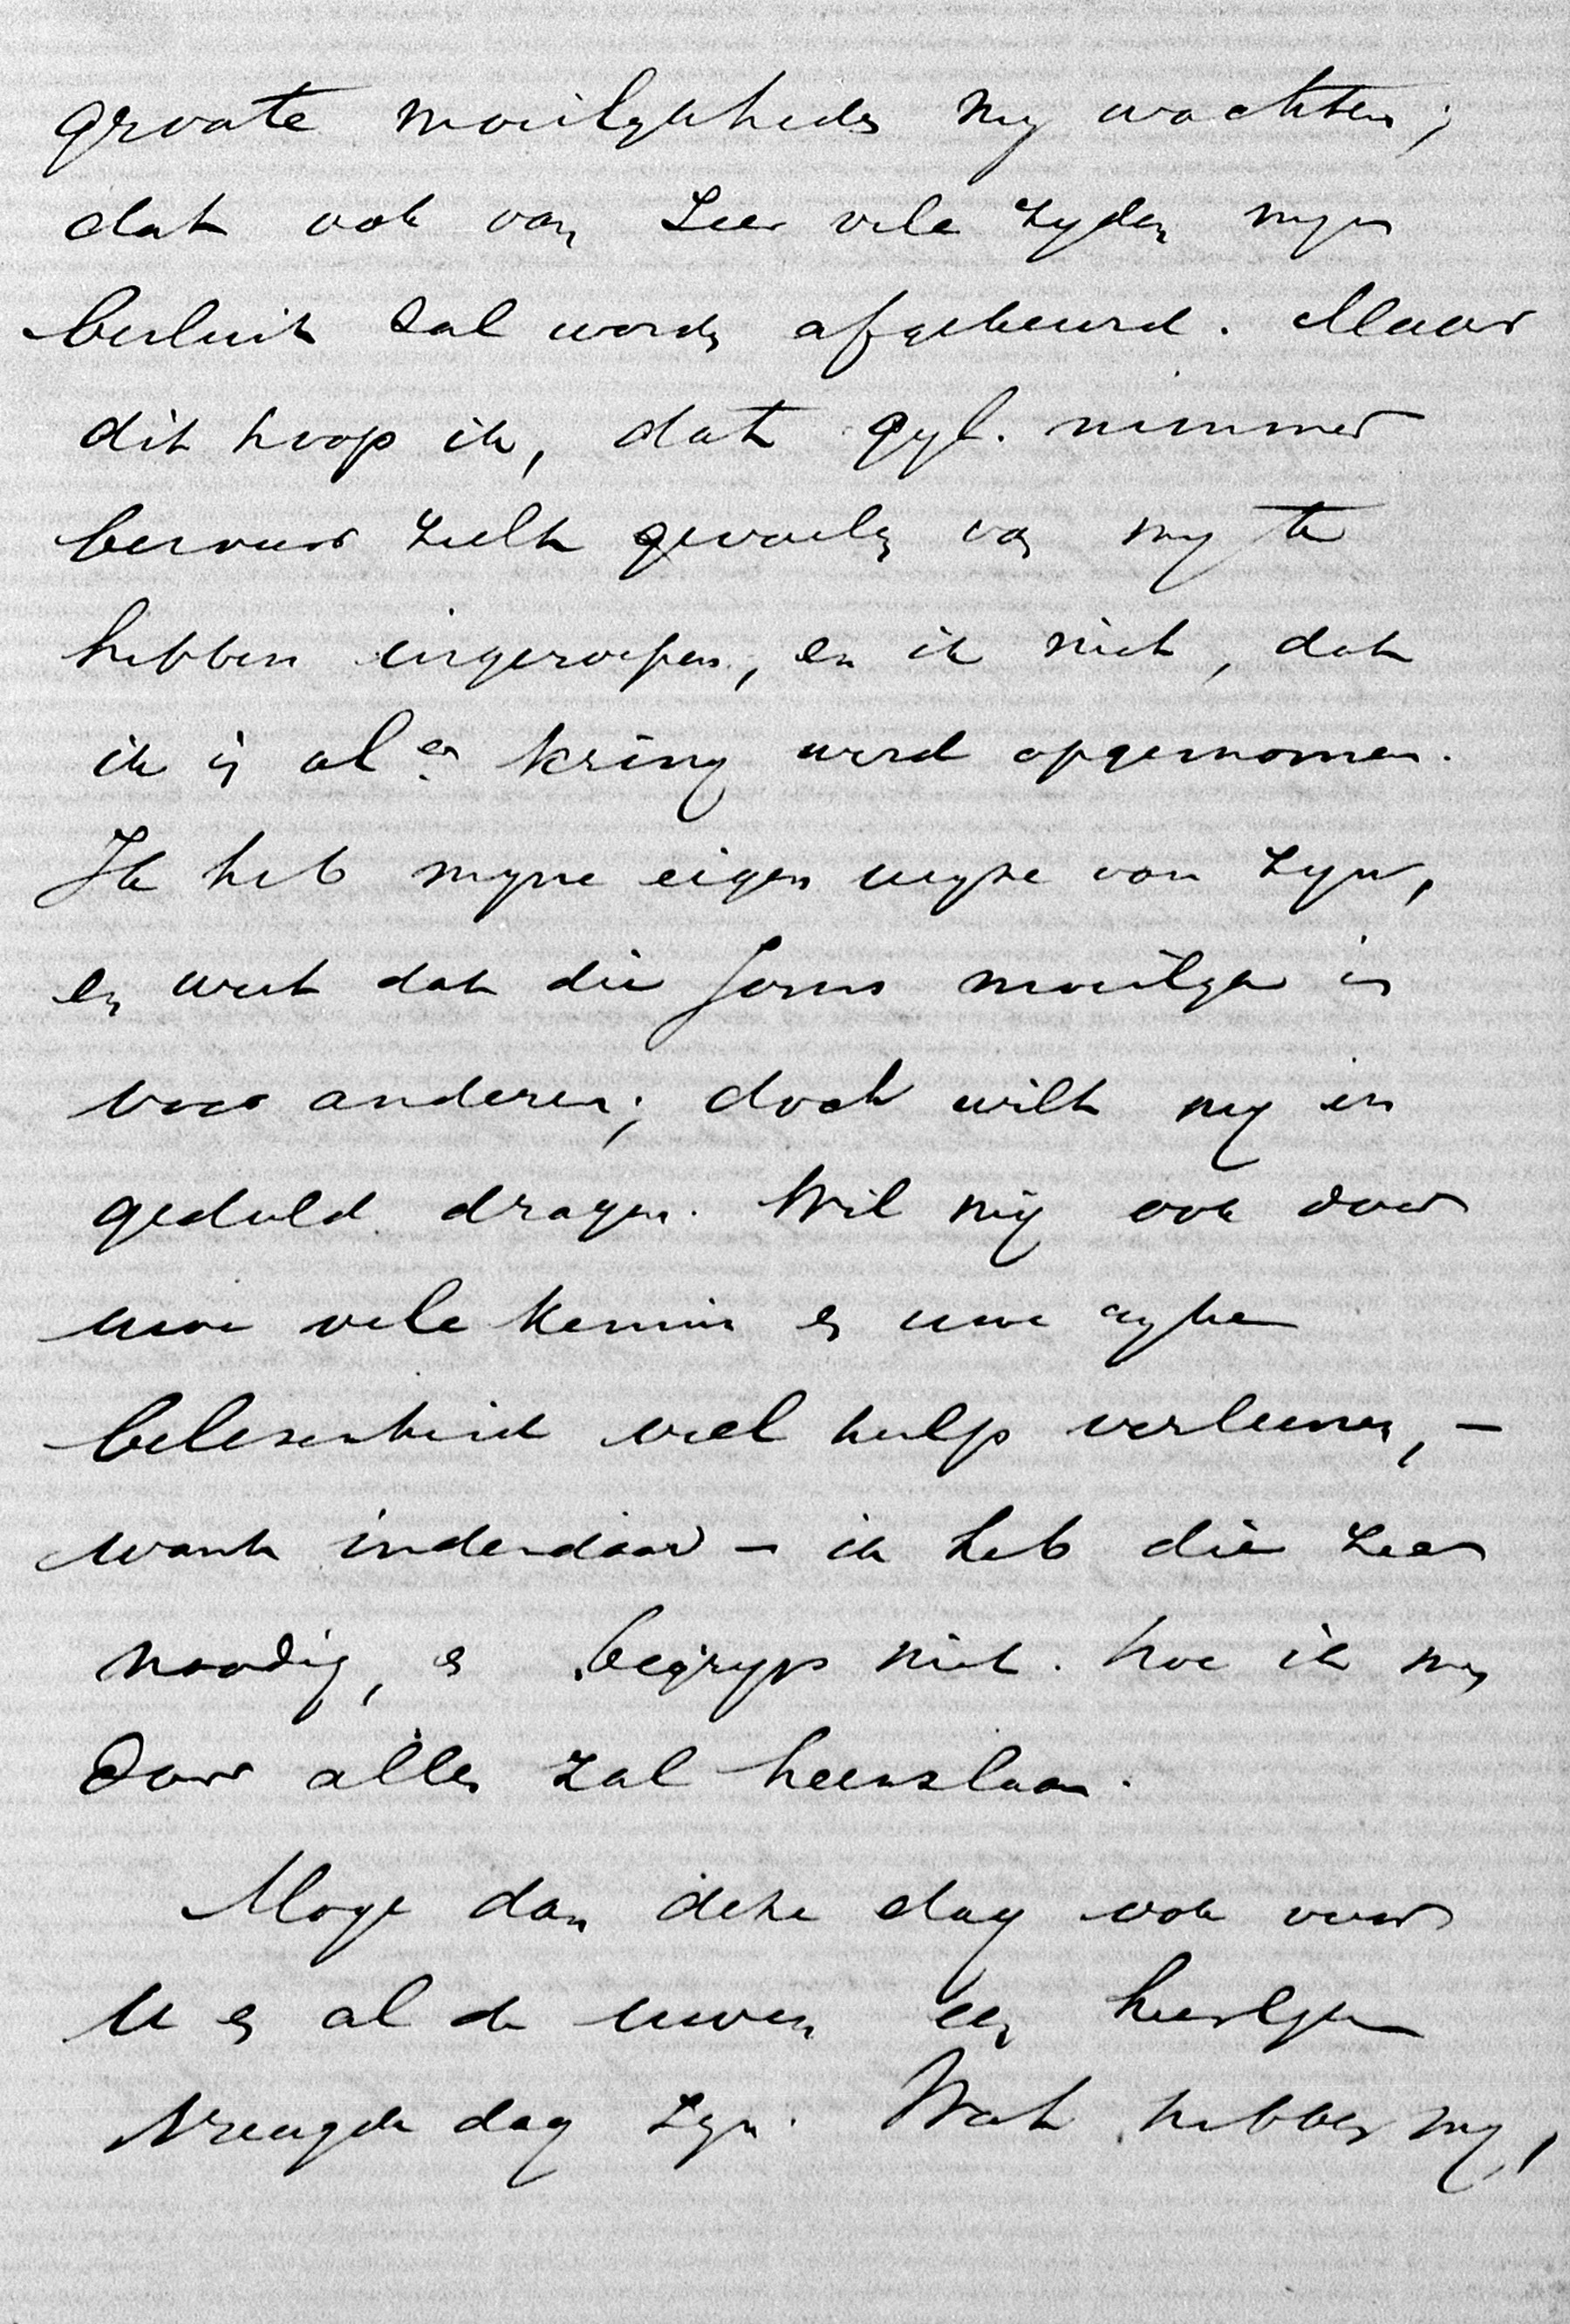 groote moeilykheden my wachten;
dat ook van zeer vele zyden myn
besluit zal worden afgekeurd. Maar
dit hoop ik, dat gyl. nimmer
berouw zult gevoelen van my te
hebben ingeroepen, en ik niet, dat
ik in kring werd opgenomen.
Ik heb myne eigen wyze van zyn,
en weet dat die soms moeilyk is
voor anderen; doch wilt my in
geduld dragen. Wil my ook door
uwe vele kennis en uwe ryke
belezenheid veel hulp verleenen, –
want inderdaad – ik heb die zeer
noodig, en begryp niet hoe ik my
door alles zal heenslaan.
Moge dan deze dag ook voor
U en al de uwen een heerlyke
vreugde dag zyn. Wat hebben wy,